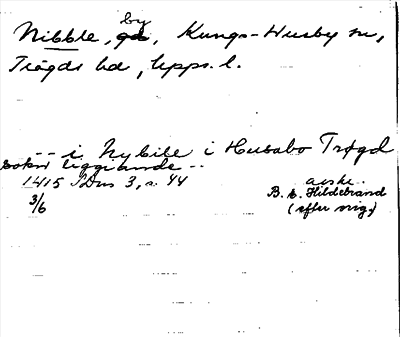 by
Nibble, gd, Kungs-Husby sn,
Trögds hd, Upps. l.
-- i Nybile i Husabo Trøgd
sokn liggiande --
1415 3/6 SDns 3, s. 44
avskr.
B. E. Hildebrand
(efter orig.)